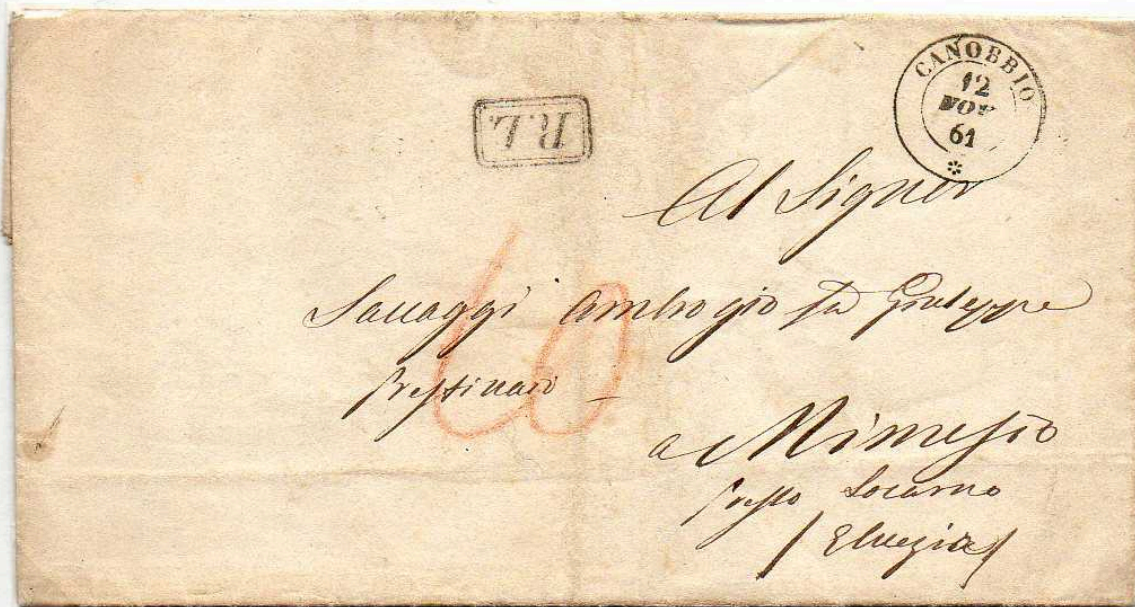 CANOBBIO
12
NOV
61
R.L.
Al Signor
Ambrogio fu Giuseppe
Prestinaio
a
presso Locarno
(Elvezia)
10